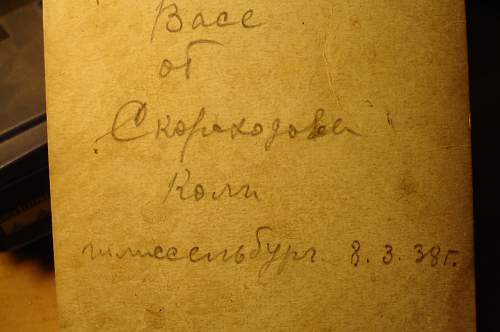 Васе
от
Скороходова
Коли
шлиссельбург. 8. 3. 38г.